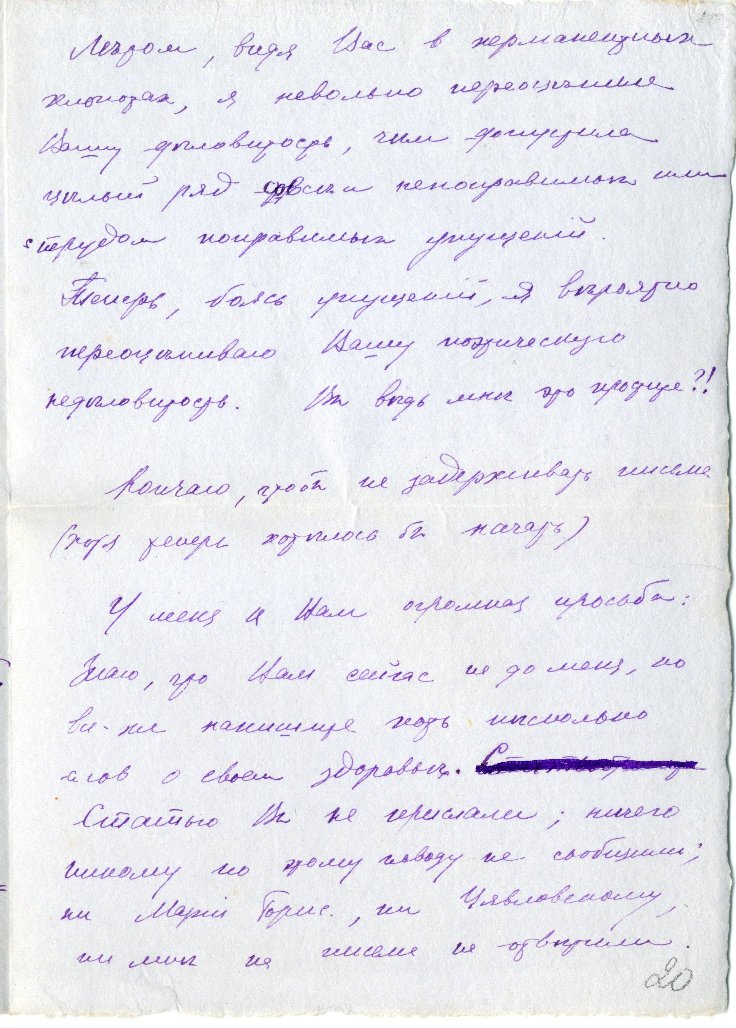 Летром, видя Вас в перманентных
хлопотах, я невольно переоценила
Вашу деловитость, чем допустила
целый ряд совсем непоправимых или
с трудом поправимых упущений.
Теперь, боясь упущений, я вероятно
переоцениваю Вашу поэтическую
неделовитость. Вы ведь мне это простите?!
Кончаю, чтобы не задерживать письма
(хотя теперь хотелось бы начать)
У меня к Вам огромная просьба:
Знаю, что Вам сейчас не до меня, но
все-же напишите хоть несколько
слов о своем здоровьи.
Статью Вы не прислали; ничего
никому по этому поводу не сообщили;
ни Марии Борис., ни Цявловскому,
ни мне на письма не ответили.
20